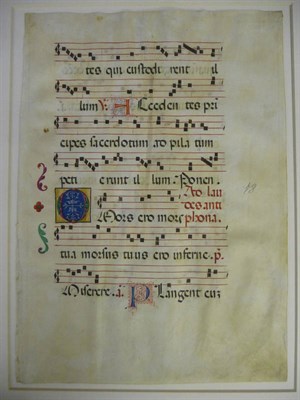 tes qui custodirent il
lum. ℣. Acceden tes pri
cipes sacerdotum ad pila tum
peti erunt il lum. Ponen.
Ad lau
des anti
O Mors ero mors phona.
tua morsus tuus ero inferne. p̄.
Miserere. a. Plangent eum
19